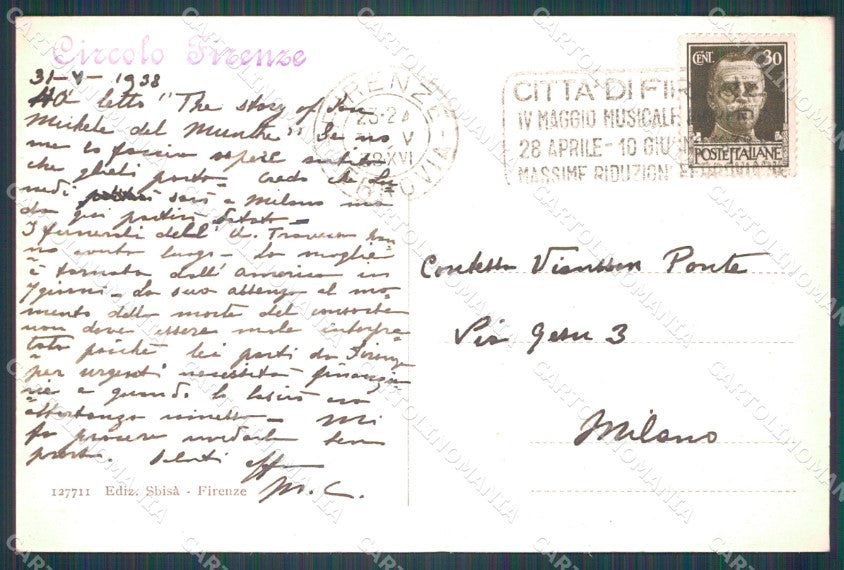 Circolo Firenze
31-V-1938
Ho letto "The story of San
Michele del Munthe" Se no
me lo faccia sapere subito
che glielo porto - Credo che lu-
nedì sarò a Milano ma
da qui partirò Sabato -
I funerali dell' On. Travessa han
no avuto luogo - La moglie
è tornata dall' America in
7 giorni - La sua assenza al mo-
mento della morte del consorte
non deve essere male interpre
tata poichè lei partì da Firenze
per urgenti necessità finanzia
rie e quando lo lasciò era
abbastanza rimesso - Mi
fa piacere vederla ben
presto. Saluti aff
M. C.
127711 Ediz. Sbisà - Firenze
FIRENZE
23-24
V
XVI
FERROVIA
CITTÀ DI FIR
IV MAGGIO MUSICALE
28 APRILE - 10 GIU
MASSIME RIDUZIONI
CENT. 30
POSTE ITALIANE
Contessa Ponte
Via Gesù 3
Milano
CARTOLINOMANIA